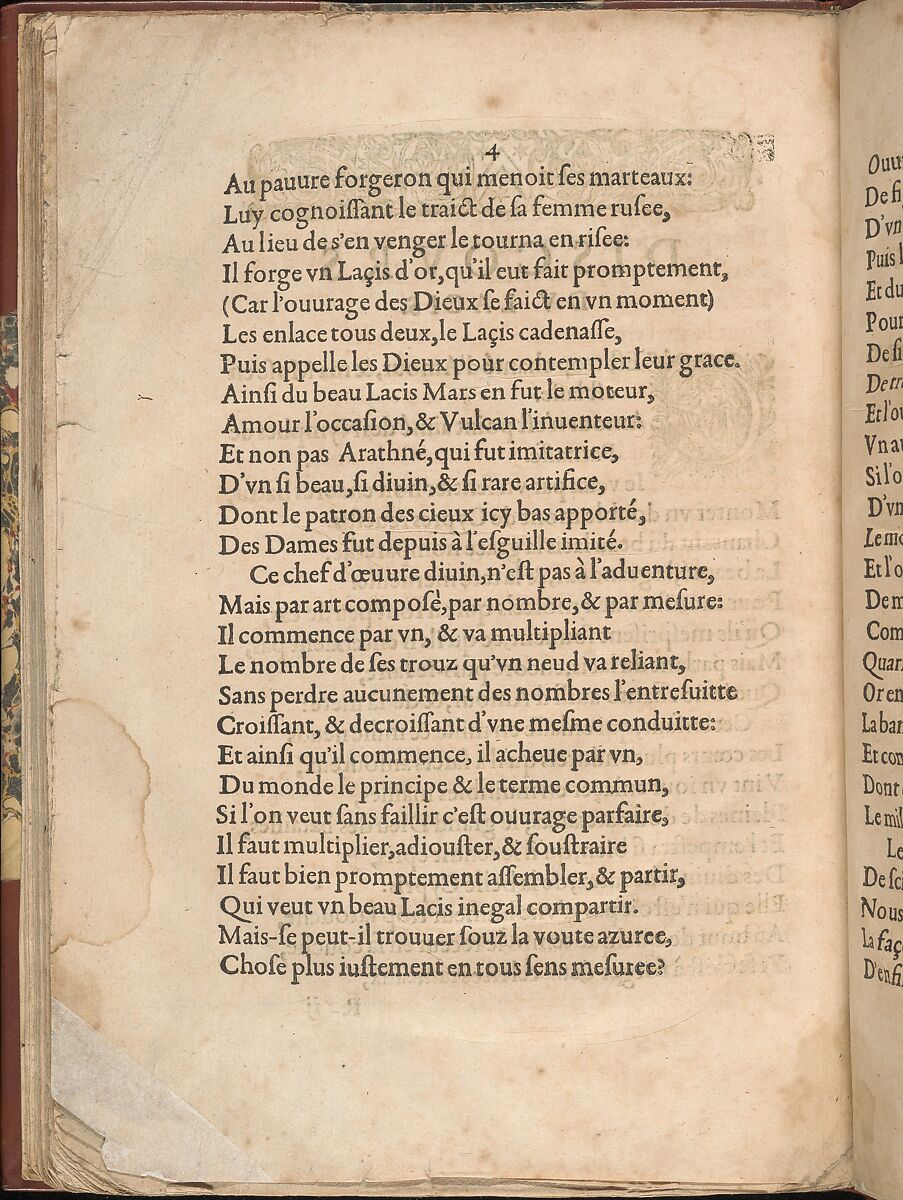 4
Au pauure forgeron qui menoit ſes marteaux:
Luy cognoiſſant le traict de ſa femme ruſee,
Au lieu de s'en venger le tourna en riſee:
Il forge vn Laçis d'or, qu'il eut fait promptement,
(Car l'ouurage des Dieux ſe faict en vn moment)
Les enlace tous deux, le Laçis cadenaſſe,
Puis appelle les Dieux pour contempler leur grace.
Ainſi du beau Lacis Mars en fut le moteur,
Amour l'occaſion, & Vulcan l'inuenteur:
Et non pas Arathné, qui fut imitatrice,
D'vn ſi beau, ſi diuin, & ſi rare artifice,
Dont le patron des cieux icy bas apporté,
Des Dames fut depuis à l'eſguille imité.
Ce chef d'œuure diuin, n'eſt pas à l'aduenture,
Mais par art compoſè, par nombre, & par meſure:
Il commence par vn, & va multipliant
Le nombre de ſes trouz qu'vn neud va reliant,
Sans perdre aucunement des nombres l'entreſuitte
Croiſſant, & decroiſſant d'vne meſme conduitte:
Et ainſi qu'il commence, il acheue par vn,
Du monde le principe & le terme commun,
Si l'on veut ſans faillir c'eſt ouurage parfaire,
Il faut multiplier, adiouſter, & ſouſtraire
Il faut bien promptement aſſembler, & partir,
Qui veut vn beau Lacis inegal compartir.
Mais-ſe peut-il trouuer ſouz la voute azuree,
Choſe plus iuſtement en tous ſens meſuree?
Ouu
De ſi
D'vn
Puis l
Et du
Pour
De ſi
De tr
Et l'o
Vn a
Si l'o
D'vn
Le m
Et l'o
De m
Com
Quar
Or en
La bar
Et con
Dont
Le mil
Le
De ſci
Nous
La faç
D'enfi